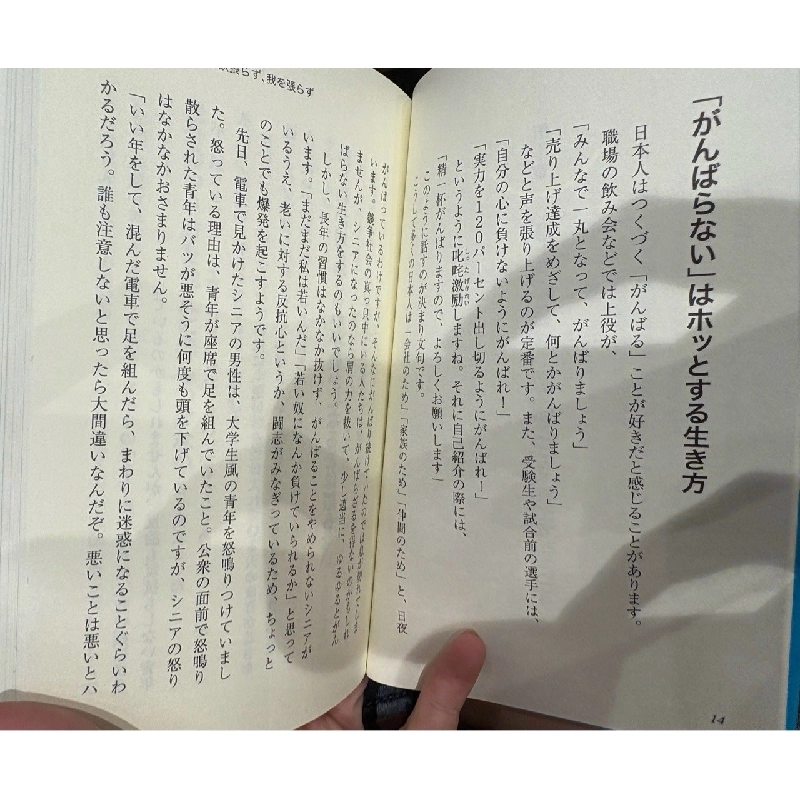 「がんばらない」はホッとする生き方
日本人はつくづく「がんばる」ことが好きだと感じることがあります。
職場の飲み会などでは上役が、
「みんなで一丸となって、がんばりましょう」
「売り上げ達成をめざして、何とかがんばりましょう」
などと声を張り上げるのが定番です。また、受験生や試合前の選手には、
「自分の心に負けないようにがんばれ！」
「実力を120パーセント出し切るようにがんばれ！」
というように叱咤激励しますね。それに自己紹介の際には、
「精一杯がんばりますので、よろしくお願いします」
このように話すのが決まり文句です。
こうして多くの日本人は「会社のため」「家族のため」「仲間のため」と、日夜
14
張らず、我を張らず
がんばっているわけですが、そんなにがんばり続けていたのでは息が
います。競争社会の真っ只中にいる人たちは、がんばらざるを得ないのかもしれ
ませんが、シニアになったのなら肩の力を抜いて、少し適当に、ゆるゆるとがん
ばらない生き方をするのもいいでしょう。
しかし、長年の習慣はなかなか抜けず、がんばることをやめられないシニアが
います。「まだまだ私は若いんだ」「若い奴になんか負けていられるか」と思って
いるうえ、老いに対する反抗心というか、闘志がみなぎっているため、ちょっと
のことでも爆発を起こすようです。
先日、電車で見かけたシニアの男性は、大学生風の青年を怒鳴りつけていまし
た。怒っている理由は、青年が座席で足を組んでいたこと。公衆の面前で怒鳴り
散らされた青年はバツが悪そうに何度も頭を下げているのですが、シニアの怒り
はなかなかおさまりません。
「いい年をして、混んだ電車で足を組んだら、まわりに迷惑になることぐらいわ
かるだろう。誰も注意しないと思ったら大間違いなんだぞ。悪いことは悪いとハ